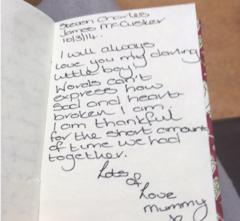 Steven Charles
James McCusker
10/3/14..
I will always
love you my darling
little boy
words can't
express how
sad and heart-
broken I am.
I am thankful
for the short amount
of time we had
together.
Lots
of
Love
mummy
x